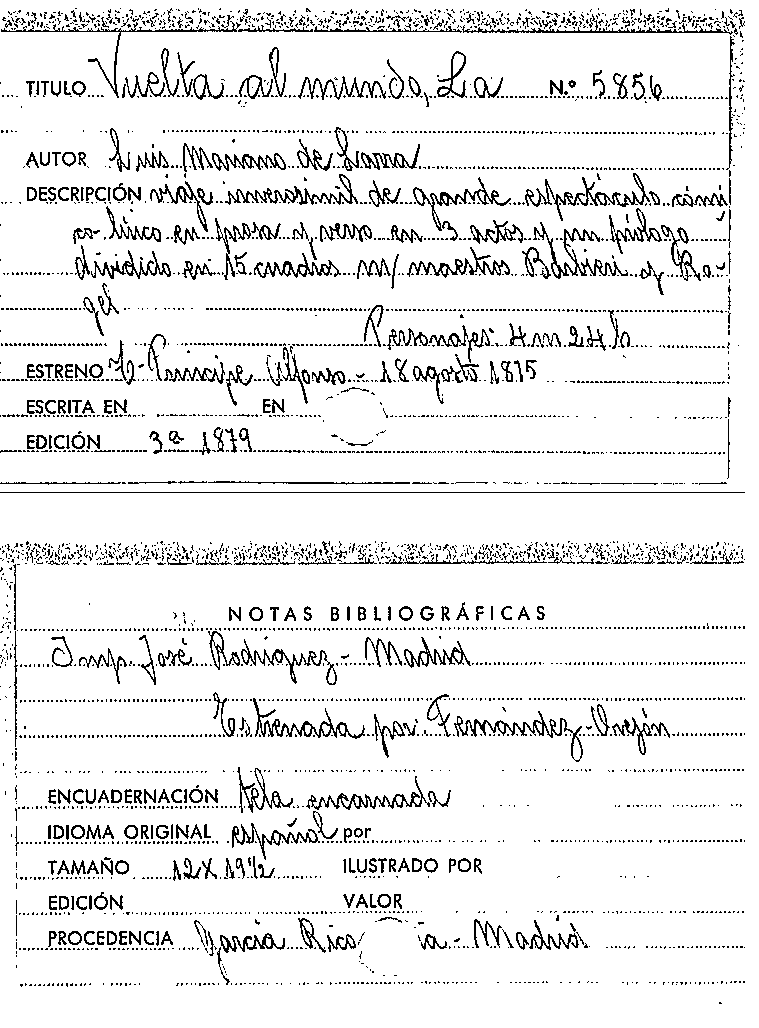 TITULO Vuelta al mundo, La N.º 5856
AUTOR Luis Mariano de Larra
DESCRIPCIÓN viaje inverosimil de grande espectáculo cómi
co-lírico en prosa y verso en 3 actos y un prólogo
dividido en 15 cuadros m/ maestros Barbieri y Ro-
gel
Personajes: 4 m 24 h
ESTRENO T- Principe Alfonso - 18 agosto 1875
ESCRITA EN EN
EDICIÓN 3ª 1879
NOTAS BIBLIOGRÁFICAS
Imp. José Rodríguez - Madrid
Estrenada por: Fernández-Orejón
ENCUADERNACIÓN tela encarnada
IDIOMA ORIGINAL español por
TAMAÑO 12 X 19½ ILUSTRADO POR
EDICIÓN VALOR
PROCEDENCIA García Rico ía - Madrid